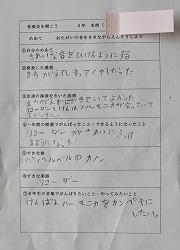 音楽会を開こう 3年 名前(
めあて おたがいの音をききながらえんそうしよう
①自分のめあて
きれいな音をひけるように
②発表した感想
まちがえしなくてよかった
③友達の演奏をきいた感想
まちがえずにできていてよかった
けんばんハーモニカが合っていて
よかった
④一年間の授業でがんばったこと・できるようになったこと
リコーダーがきれいにふけ
るようになった
⑤すきな曲
パッヘルベルのカノン
⑥すきな楽器
リコーダー
⑦4年生の音楽でがんばりたいこと・やってみたいこと
けんばんハーモニカをカンペキに
したい。